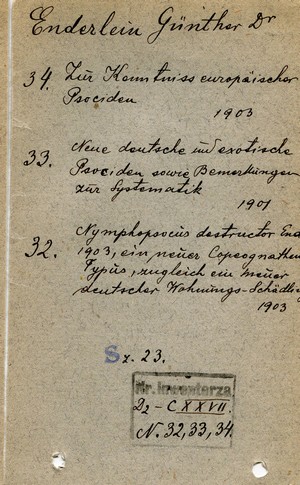 Enderlein Günther Dr
34. Zur Kenntniss europäischer
Psociden
1903
33. Neue deutsche und exotische
Psociden sowie Bemerkungen
zur Systematik
1901
32. Nymphopsocus destructor End
1903, ein neuer Copeognathen
Typus, zugleich ein neuer
deutscher Wohnungs-Schädling
1903
Sz. 23.
Nr. inwentarza
D2 - C XXVII.
N. 32, 33, 34.